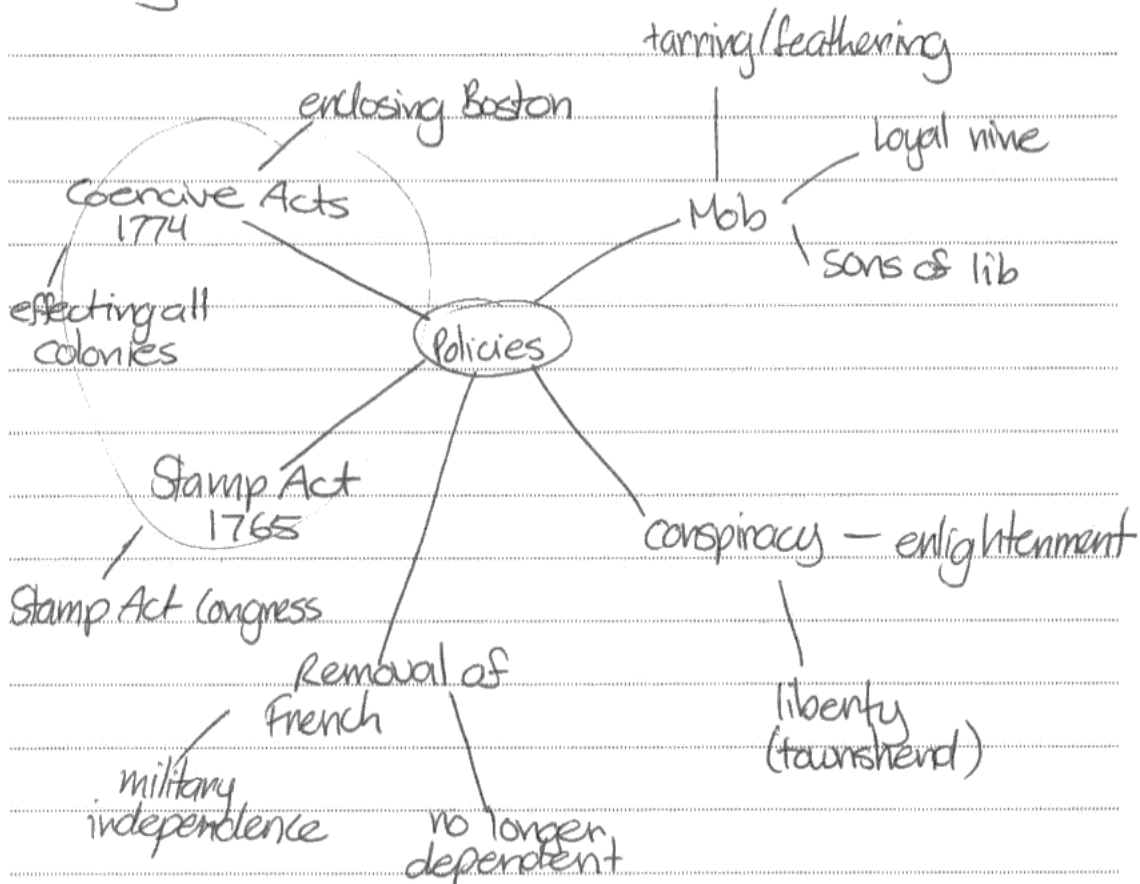 tarring/feathering
enclosing Boston
Loyal nine
Coercive Acts
1774
Mob
sons of lib
effecting all
colonies
Policies
Stamp Act
1765
conspiracy — enlightenment
Stamp Act Congress
Removal of
French
liberty
(townshend)
military
independence
no longer
dependent